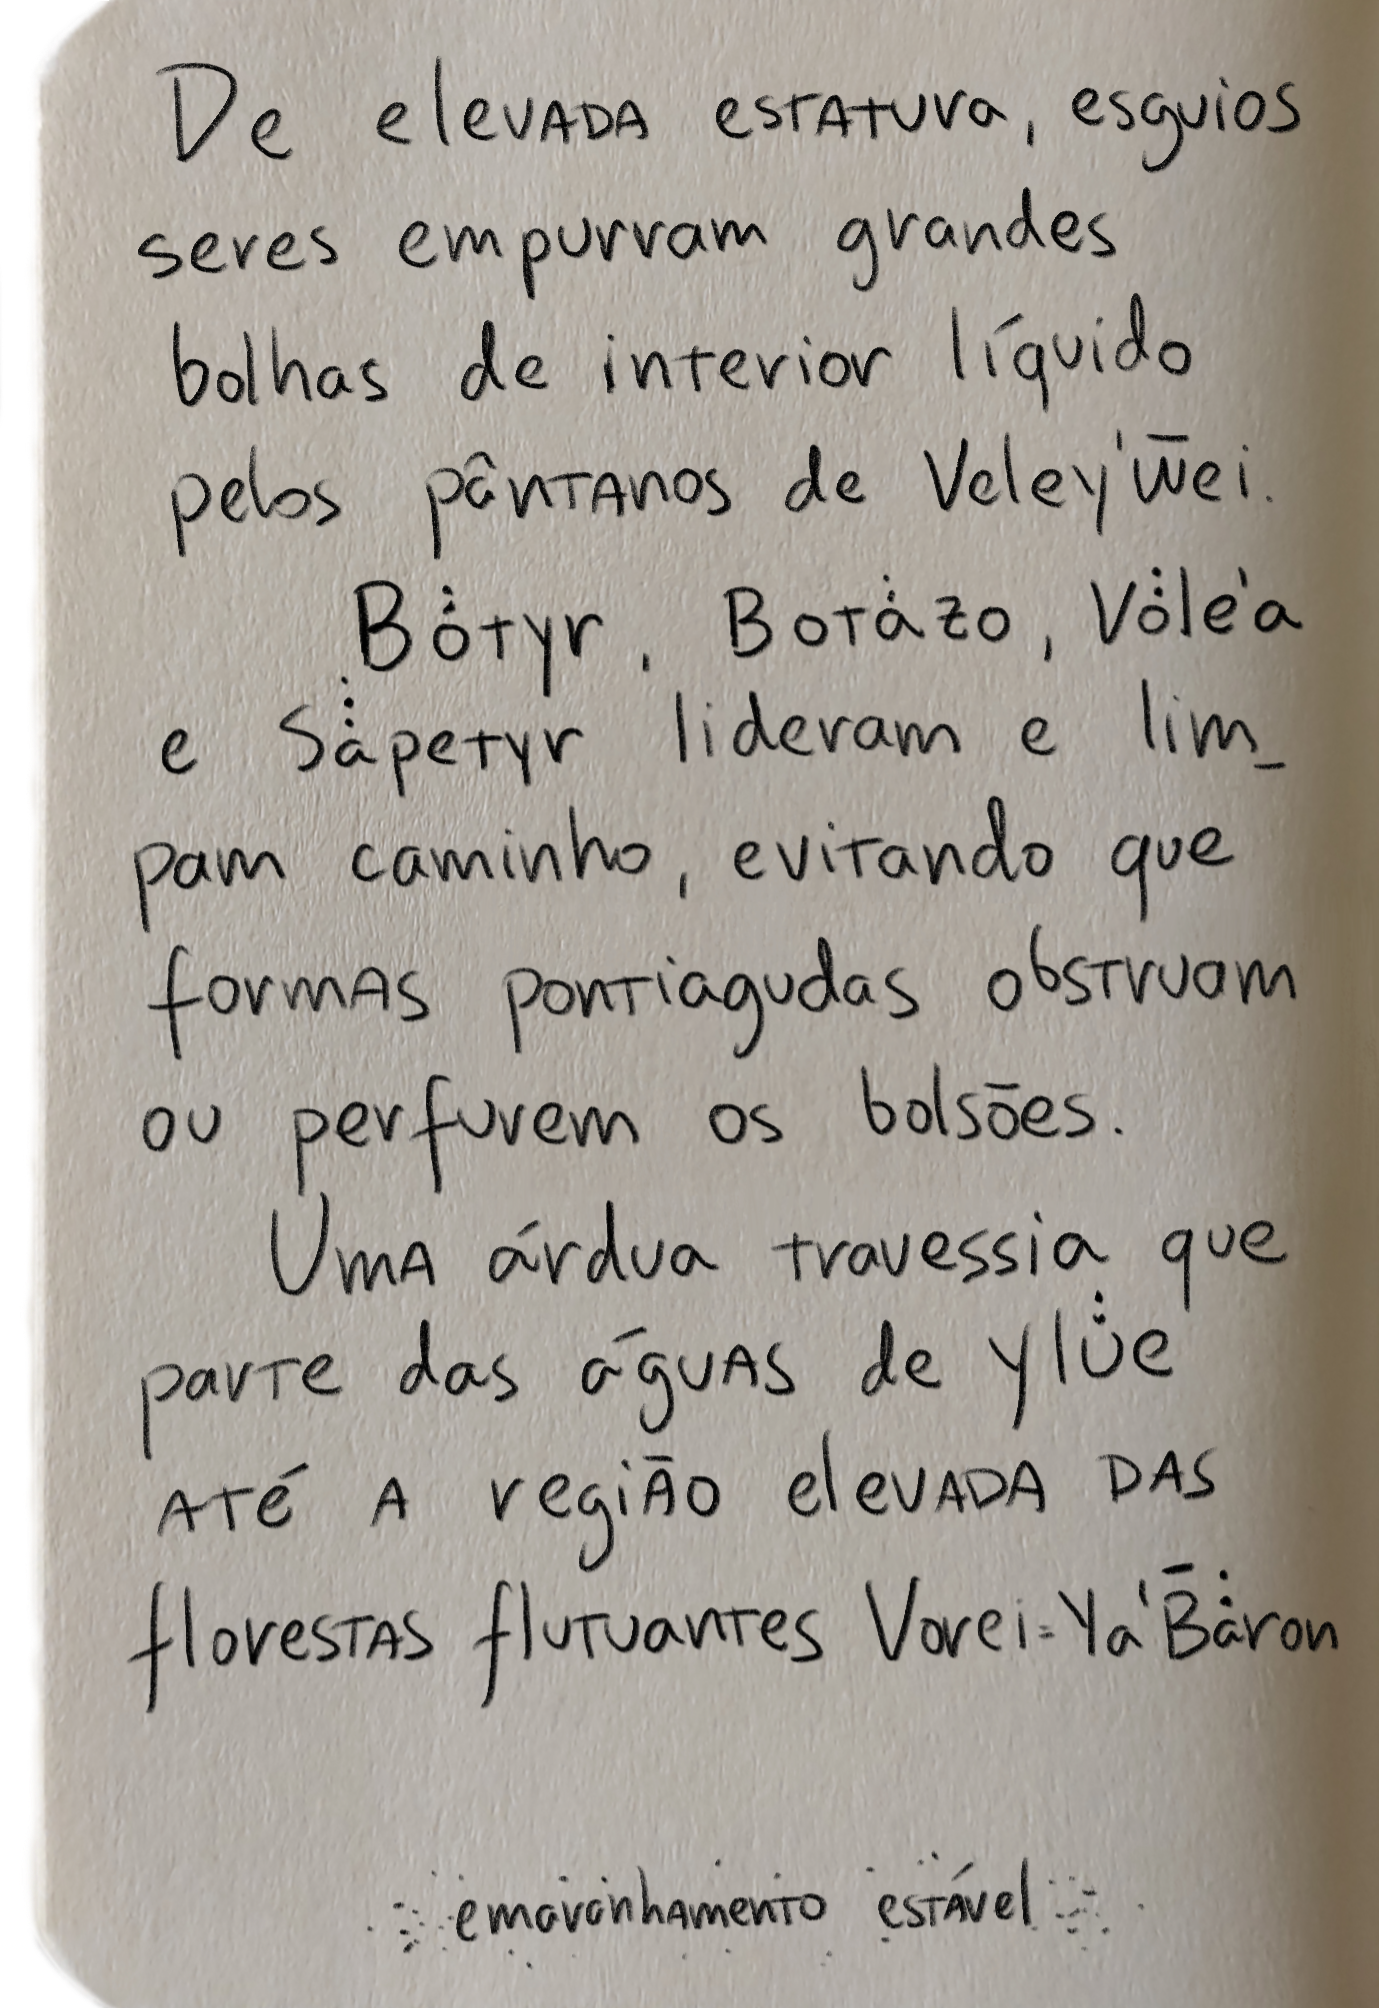 De elevada estatura, esguios
seres empurram grandes
bolhas de interior líquido
pelos pântanos de Veley'w̅ei.
Bȯ̇tyr, Botȧ̇zo, Vȯ̇le'a
e Sȧ̇̇petyr lideram e lim_
pam caminho, evitando que
formas pontiagudas obstruam
ou perfurem os bolsões.
Uma árdua travessia que
parte das águas de ylu̇̇e
até a região elevada das
florestas flutuantes Vorei=Ya'B̄ȧ̇ron
emaranhamento estável